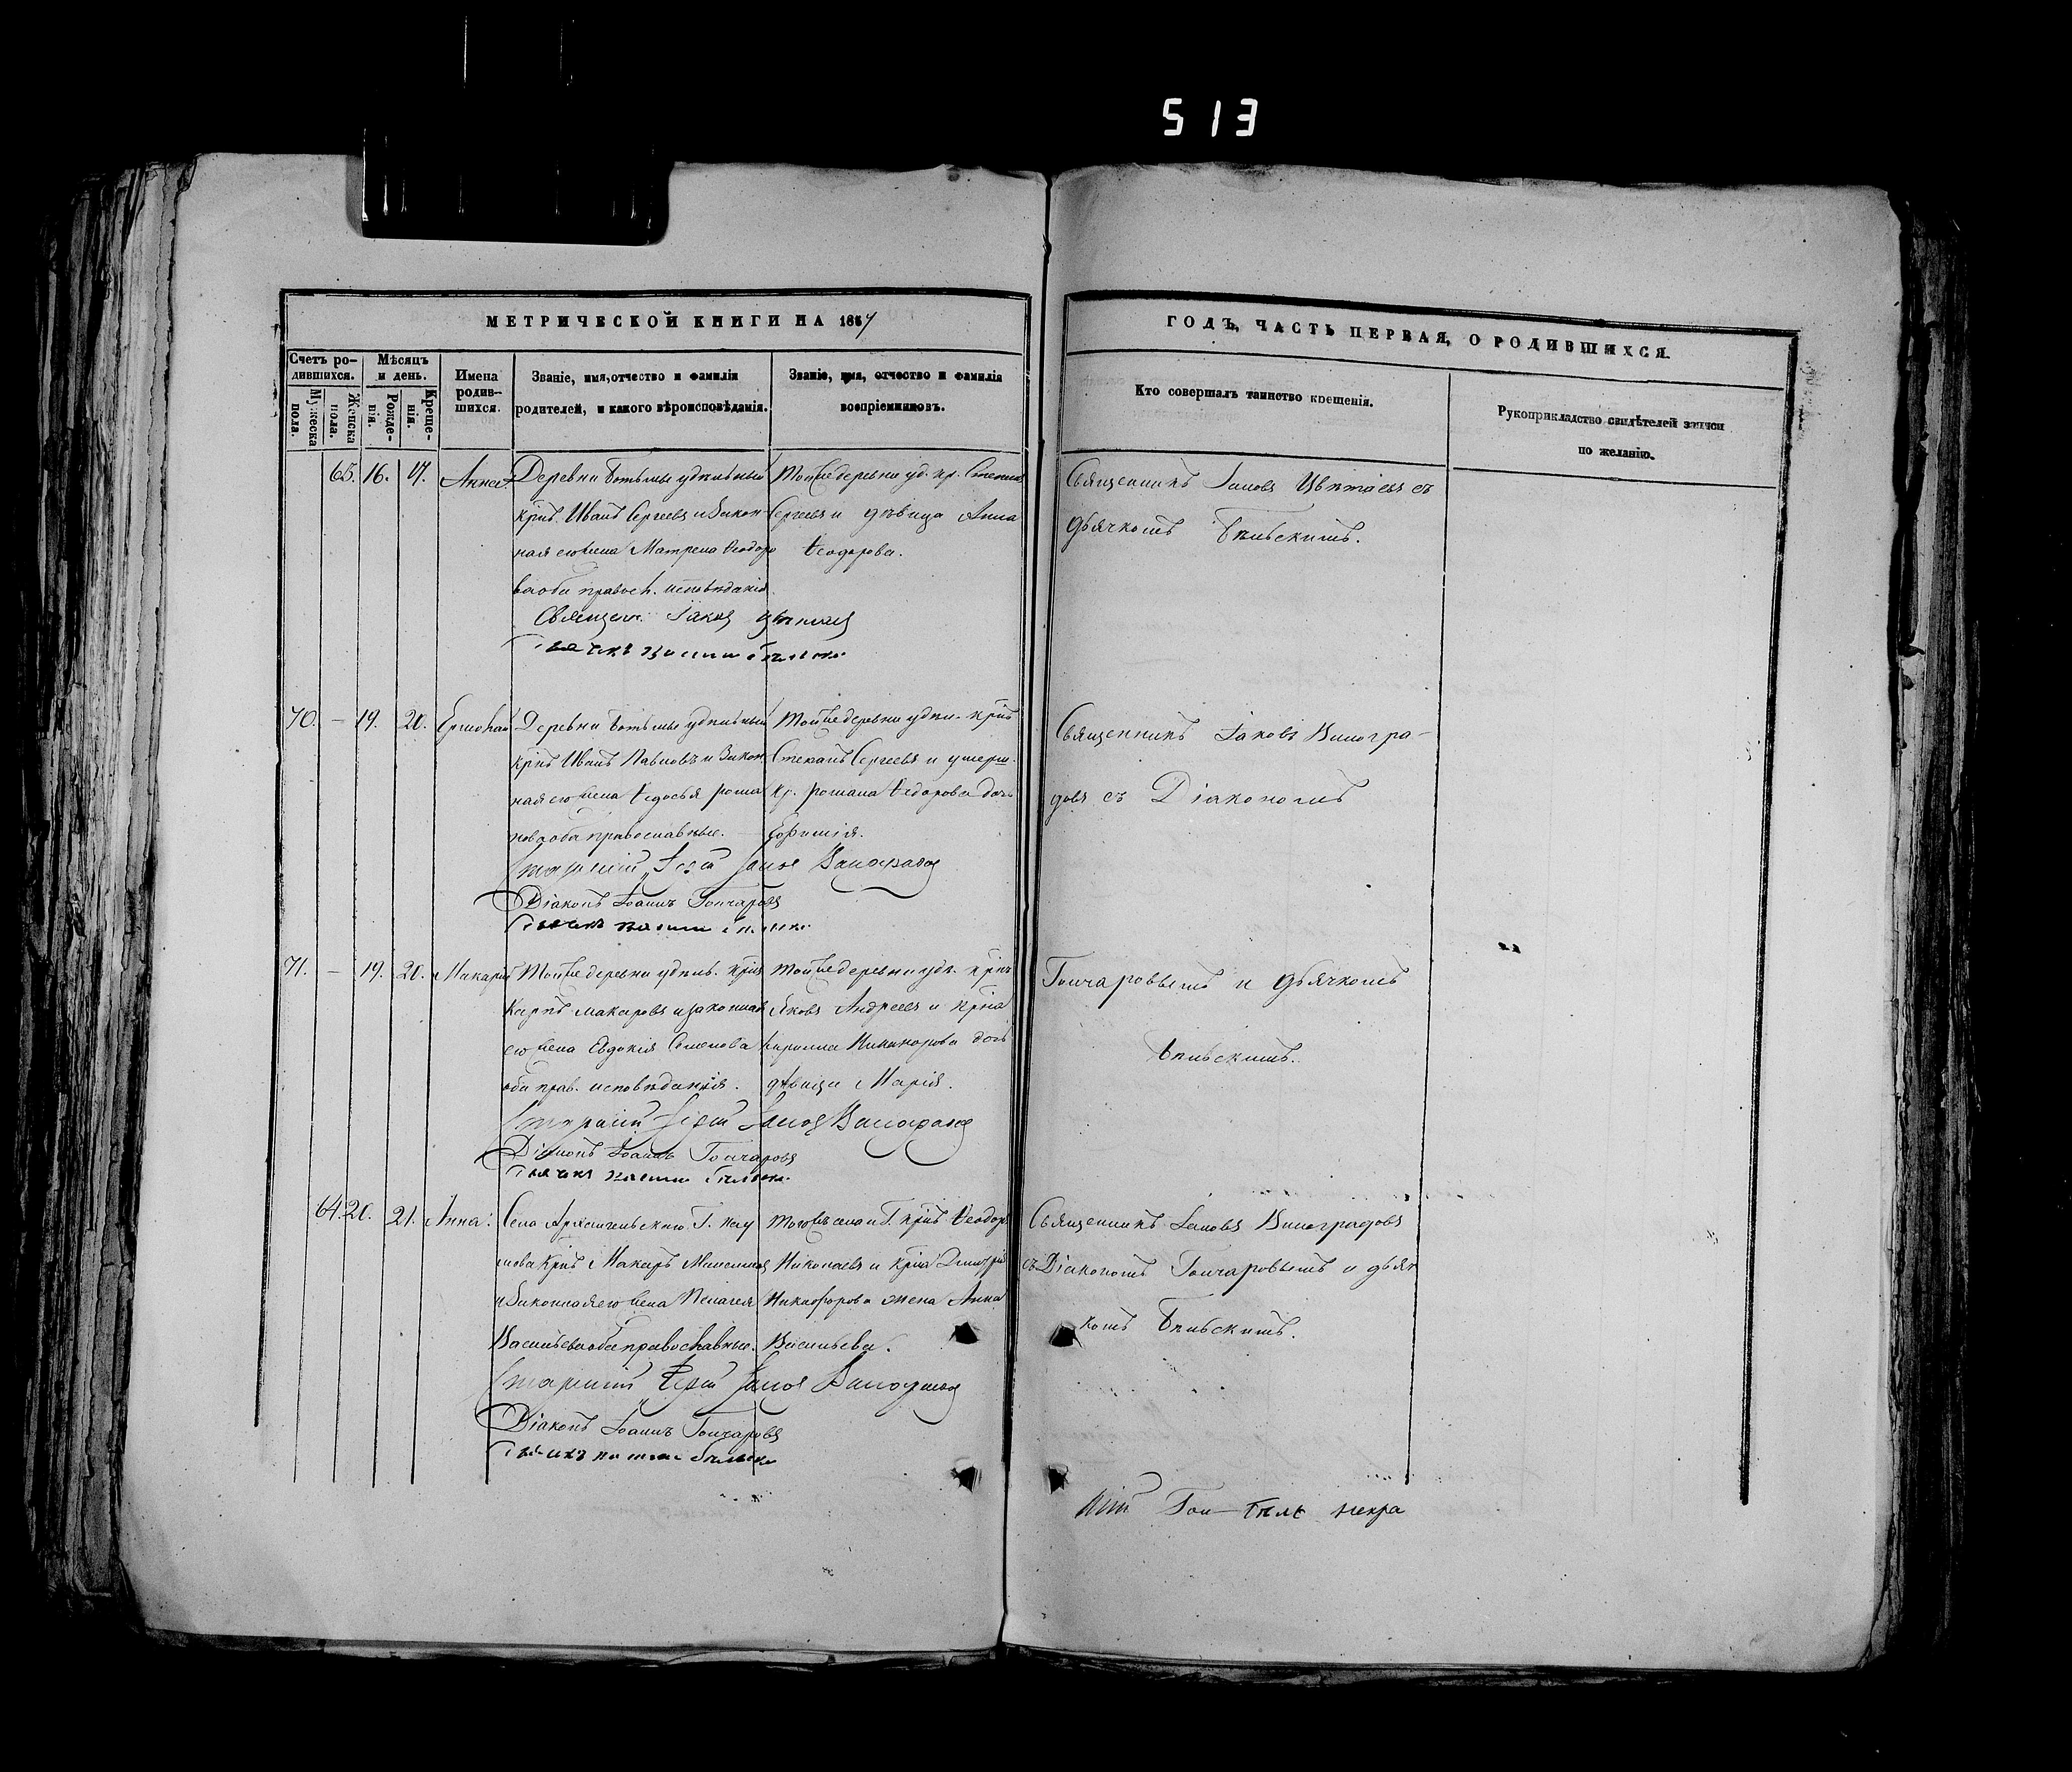 513
МЕТРИЧЕСКОЙ КНИГИ НА 1857
ГОДЪ, ЧАСТЬ ПЕРВАЯ, О РОДИВШИХСЯ.
Счетъ ро-
дившихся.
Мужеска
пола.
Женска
пола.
Мѣсяцъ
и день.
Рожде-
нія.
Креще-
нія.
Имена
родив-
шихся.
Званіе, имя, отчество и фамилія
родителей, и какого вѣроисповѣданія.
Званіе, имя, отчество и фамилія
воспріемниковъ.
Кто совершалъ таинство крещенія.
Рукоприкладство свидѣтелей записи
по желанію.
63. 16. 17. Анна
Деревни удѣльный
крнъ Иванъ Сергеевъ и закон-
ная его жена Матрена Ѳеодоро
ва оба правосл. исповѣданія.
Священ. Іаковъ Цвѣтаевъ
Тойже деревни уд. кр. Степанъ
Сергеевъ и дѣвица Анна
Ѳеодорова.
Священникъ Іаковъ Цвѣтаевъ съ
дьячкомъ Бѣльскимъ.
70. — 19. 20.
Деревни удѣльный
крнъ Иванъ Павловъ и закон
ная его жена Ѳедосья Рома
нова оба православные.
Старшій Іерей Іаковъ Виноградовъ
Діаконъ Іоаннъ Гончаровъ
Тойже деревни удѣл. крнъ
Степанъ Сергеевъ и умерш.
кр. Романа Ѳедорова дочь
Евфимія.
Священникъ Іаковъ Виногра-
довъ съ Діакономъ
71. — 19. 20. Макарій
Тойже деревни удѣл. крнъ
Карпъ Макаровъ и законная
его жена Евдокія Семенова
оба прав. исповѣданія.
Старшій Іерей Іаковъ Виноградовъ
Діаконъ Іоаннъ Гончаровъ
Тойже деревни удѣл. крнъ
Яковъ Андреевъ и крна
Кирилла Никифорова дочь
дѣвица Марія.
Гончаровымъ и дьячкомъ
Бѣльскимъ.
64. 20. 21. Анна.
Села Архангельскаго Г.
крнъ Макаръ
и законная его жена Пелагея
Васильева оба православные.
Старшій Іерей Іаковъ Виноградовъ
Діаконъ Іоаннъ Гончаровъ
Тогожъ села и Г. крнъ Ѳеодоръ
Николаевъ и крна Димитрія
Никифорова жена Анна
Васильева.
Священникъ Іаковъ Виноградовъ
съ Діакономъ Гончаровымъ и дьяч
комъ Бѣльскимъ.
Гон— Бѣлс